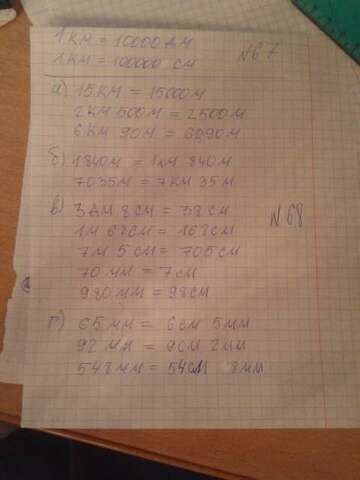 1 км = 10000 дм
1 км = 100000 см
№67
а) 15 км = 15000 м
2 км 500 м = 2500 м
6 км 90 м = 6090 м
б) 1840 м = 1 км 840 м
7035 м = 7 км 35 м
в) 3 дм 8 см = 38 см
№68
1 м 62 см = 162 см
7 м 5 см = 705 см
70 мм = 7 см
980 мм = 98 см
г) 65 мм = 6 см 5 мм
92 мм = 9 см 2 мм
548 мм = 54 см 8 мм